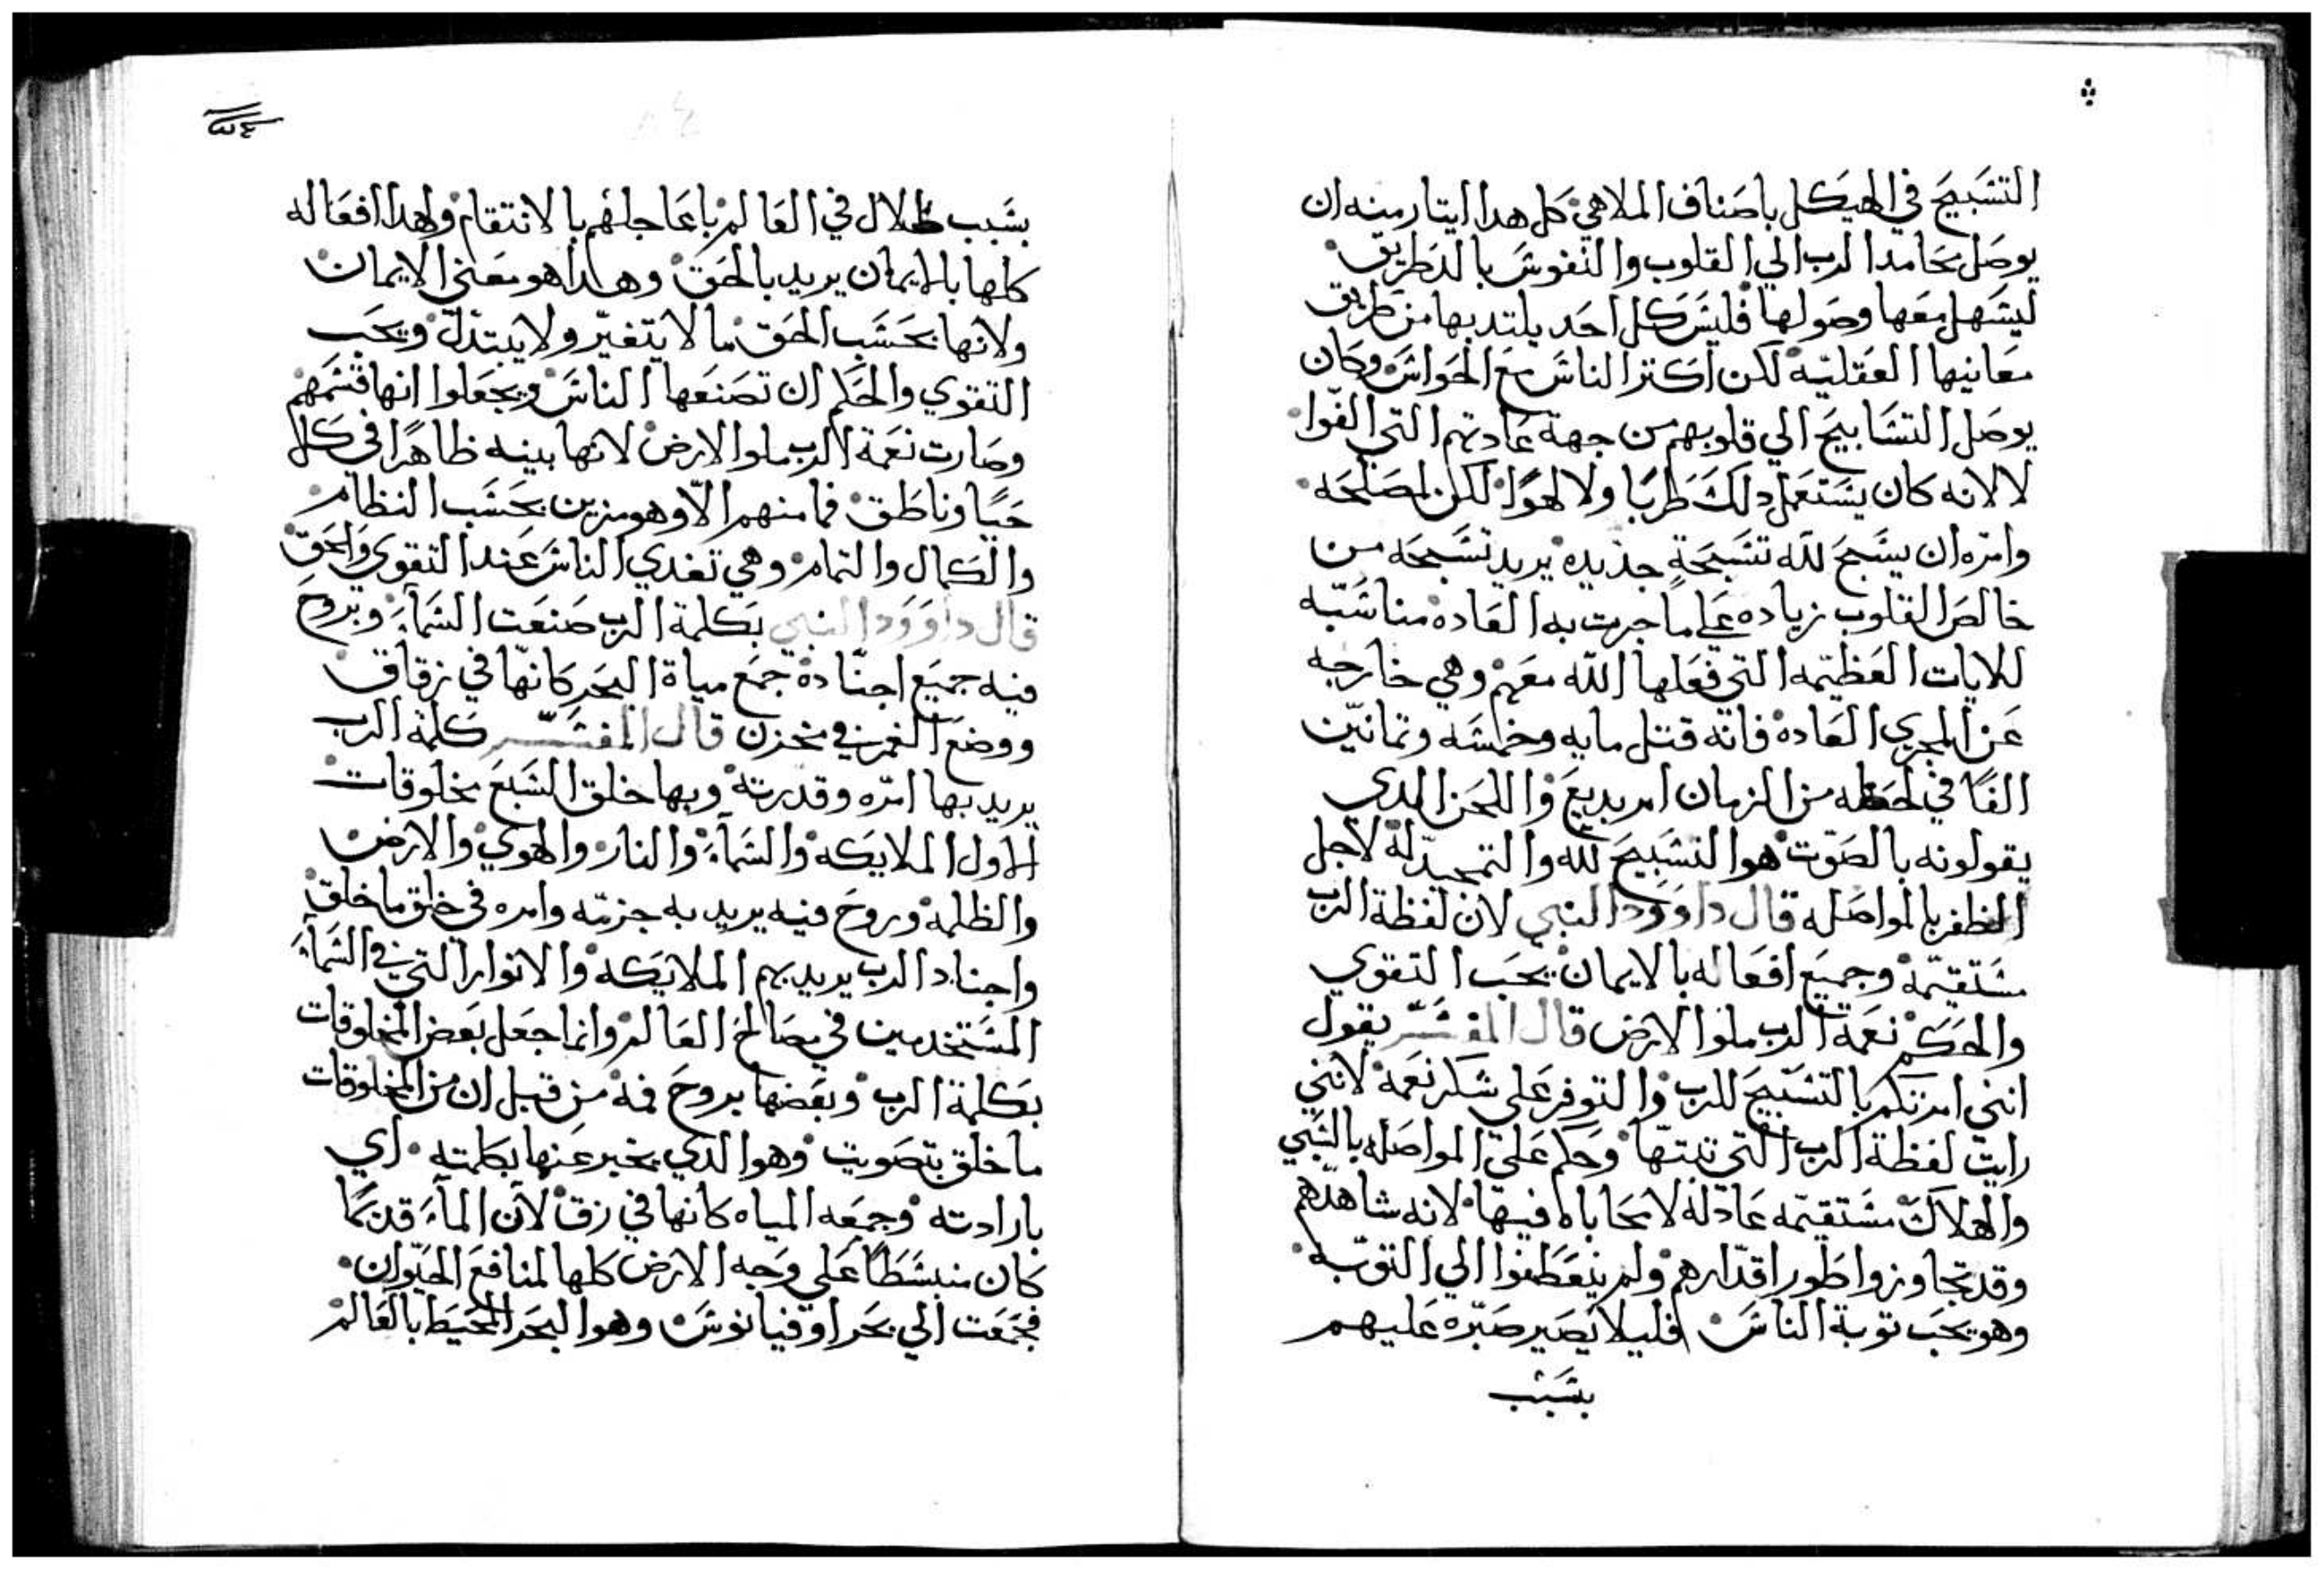 التسبيح في الهيكل باصناف الملاهي كل هدا ايتار منه ان
يوصل محامد الرب الي القلوب والنفوس بالد طريق
ليسهل معها وصولها فليس كل احد يلتد بها من طريق
معانيها العقليه لكن اكتر الناس مع الحواس وكان
يوصل التسابيح الي قلوبهم من جهة عادتهم التي الفوا
لا لانه كان يستعمل دلك طربا ولا لهوا لكن لمصلحه
وامره ان يسبح لله تسبحة جديده يريد تسبحه من
خالص القلوب زياده علي ما جرت به العاده مناسبه
للايات العظيمه التي فعلها الله معهم وهي خارجه
عن المجري العاده فانه قتل مايه وخمسه وتمانين
الفا في لحظه من الزمان امر بديع واللحن الدي
يقولونه بالصوت هو التسبيح لله والتمجيد له لاجل
الظفر بالمواصله قال داوود النبي لان لفظة الرب
مستقيمة وجميع افعاله بالايمان يحب التقوي
والحكم نعمة الرب ملوا الارض قال المفسر يقول
انني امرتكم بالتسبيح للرب والتوفر علي شكر نعمه لانني
رايت لفظة الرب التي تبتها وحكم علي المواصله بالسبي
والهلاك مستقيمه عادلة لا محاباه فيها لانه شاهدهم
وقد تجاوزوا طور اقدارهم ولم ينعطفوا الي التوبه
وهو يحب توبة الناس فليلا يصير صبره عليهم
بسبب
بسبب ظلال في العالم باعاجلهم بالانتقام ولهدا افعاله
كلها بالايمان يريد بالحق وهدا هو معني الايمان
ولانها بحسب الحق ما لا يتغير ولا يتبدل ويحب
التقوي والحكم ان تصنعها الناس ويجعلوا انها قسمهم
وصارت نعمة الرب ملوا الارض لانها بينه ظاهرا في كل
حيا وناطق فما منهم الا وهو مزين بحسب النظام
والكمال والتمام وهي تغدي الناس عند التقوي والحق
قال داوود النبي بكلمة الرب صنعت السماء وبروح
فيه جميع اجناده جمع مياة البحر كانها في زقاق
ووضع الغمر في مخزن قال المفسر كلمة الرب
يريد بها امره وقدرته وبها خلق السبع مخلوقات
الاول الملايكه والسماء والنار والهوي والارض
والظلمه وروح فيه يريد به جزمه وامره في خلق ما خلق
واجناد الرب يريد بهم الملايكه والانوار التي في السماء
المستخدمين في مصالح العالم وانما جعل بعض المخلوقات
بكلمة الرب وبعضها بروح فمه من قبل ان من المخلوقات
ما خلق بتصويت وهو الدي يخبر عنها بكلمته اي
بارادته وجمعه المياه كانها في زق لان الماء قديما
كان منبسطا علي وجه الارض كلها لمنافع الحيوان
فجمعت الي بحر اوقيانوس وهو البحر المحيط بالعالم